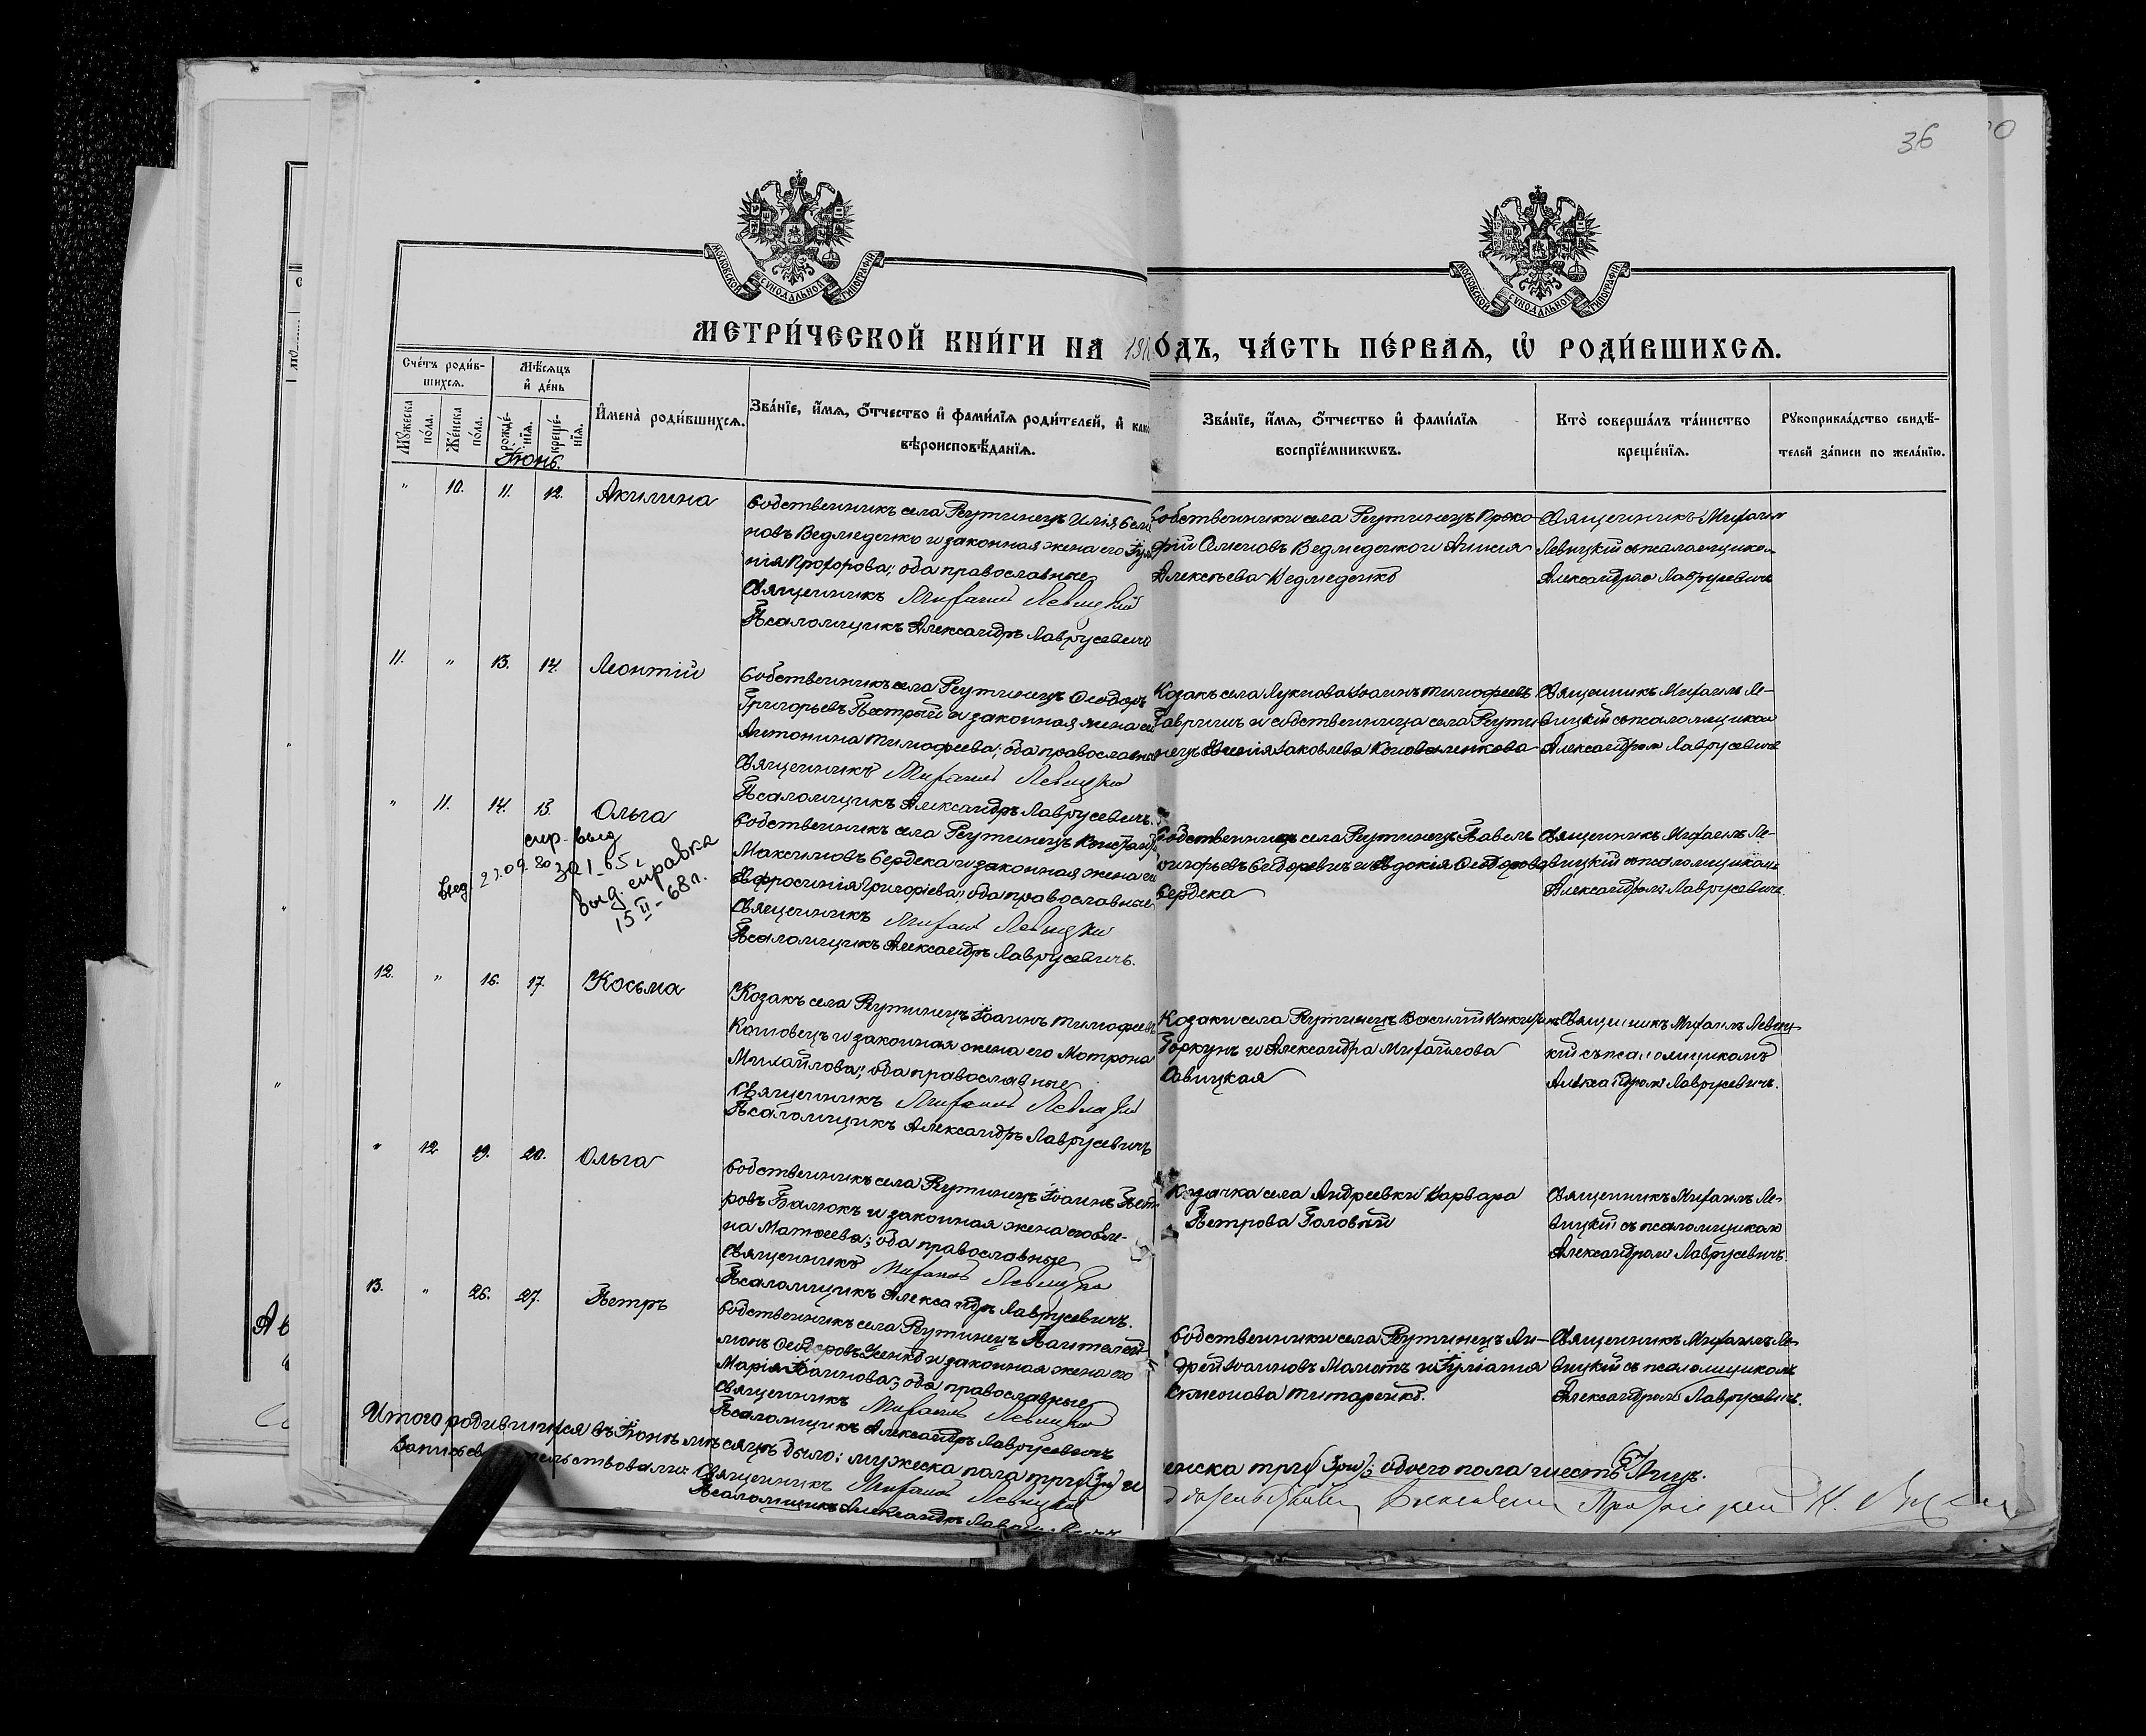 36
МОСКОВСКОЙ СѴНОДАЛЬНОЙ ТИПОГРАФІИ
МОСКОВСКОЙ СѴНОДАЛЬНОЙ ТИПОГРАФІИ
МЕТРИ́ЧЕСКОЙ КНИ́ГИ НА
О́ДЪ, ЧА́СТЬ ПЕ́РВАЯ, Ѡ РОДИ́ВШИХСЯ.
Сче́тъ роди́в-
шихся.
Мѣ́сяцъ
и҆ де́нь
Мꙋ́жеска
по́ла.
Же́нска
по́ла.
рожде́-
нїя.
креще́-
нїя.
И҆мена̀ роди́вшихся.
Зва́нїе, и҆́мя, ѻ҆́тчество и҆ фами́лїя роди́телей, и҆
вѣроисповѣ́данїя.
Зва́нїе, и҆́мя, ѻ҆́тчество и҆ фами́лїя
воспрїе́мникѡвъ.
Кто̀ соверша́лъ та́инство
креще́нїя.
Рꙋкоприкла́дство свидѣ́-
телей за́писи по жела́нїю.
Іюнь.
" 10. 11. 12. Акилина
Собственникъ села Реутинецъ Илія
новъ Ведмеденко и законная жена его
нія Прохорова; оба православные
Священникъ Михаилъ Левицкій
Псаломщикъ Александръ Лаврусевичъ
Собственники села Реутинецъ Проко-
фій Семеновъ Ведмеденко и Анисія
Алексѣева Ведмеденко
Священникъ Михаилъ
Левицкій съ псаломщикомъ
Александромъ Лаврусевичъ
11. " 13. 14. Леонтій
Собственникъ села Реутинецъ Ѳеодоръ
Григорьевъ Пестрый и законная жена
Антонина Тимофеева; оба православные
Священникъ Михаилъ Левицкій
Псаломщикъ Александръ Лаврусевичъ.
Козакъ села Лукнова Іоаннъ Тимофеевъ
Гавришъ и собственница села Реути
нецъ Яковлева Коноваленкова
Священникъ Михаилъ Ле-
вицкій съ псаломщикомъ
Александромъ Лаврусевичъ
" 11. 14. 15. Ольга
спр. выд
30 I-65 г
выд. 27.09.80
выд. справка
15 II-68 г.
Собственникъ села Реутинецъ
Максимовъ Бердека и законная жена
Ефросинія Григорiева; оба православные
Священникъ Михаилъ Левицкій
Псаломщикъ Александръ Лаврусевичъ.
села Реутинецъ Павелъ
Григорьевъ Сидоревичъ и Авдокія Ѳеодорова
Бердека
Священникъ Михаилъ Ле-
вицкій съ псаломщикомъ
Александромъ Лаврусевичъ.
12. " 16. 17. Косьма
Козакъ села Реутинецъ Іоаннъ Тимофеевъ
и законная жена его Мотрона
Михайлова; оба православные
Священникъ Михаилъ Левицкій
Псаломщикъ Александръ Лаврусевичъ
Козаки села Реутинецъ Василій
Горкунъ и Александра Михайлова
Савицкая
Священникъ Михаилъ Левиц-
кій съ псаломщикомъ
Александромъ Лаврусевичъ.
" 12 19. 20. Ольга
Собственникъ села Реутинецъ Іоаннъ Пет
ровъ Балюкъ и законная жена его Еле-
на Матѳеева; оба православные
Священникъ Михаилъ Левицкій
Псаломщикъ Александръ Лаврусевичъ.
Козачка села Андреевки Варвара
Петрова Головый
Священникъ Михаилъ Ле-
вицкій съ псаломщикомъ
Александромъ Лаврусевичъ.
13. " 26. 27. Петръ
Собственникъ села Реутинецъ Пантелей-
монъ Ѳеодоровъ Усенко и законная жена его
Марія Іоаннова; оба православные
Священникъ Михаилъ Левицкій
Псаломщикъ Александръ Лаврусевичъ
Собственники села Реутинецъ Ан-
дрей Іоанновъ Малютъ и Іуліанія
Симеонова Титаренко.
Священникъ Михаилъ Ле-
вицкій съ псаломщикомъ
Александромъ Лаврусевичъ.
Итого родившихся въ Іюнѣ мѣсяцѣ было: мужеска пола три (3) и
енска три (3ри); обоего пола шесть (6) лицъ.
Священникъ Михаилъ Левицкій
Псаломщикъ Александръ